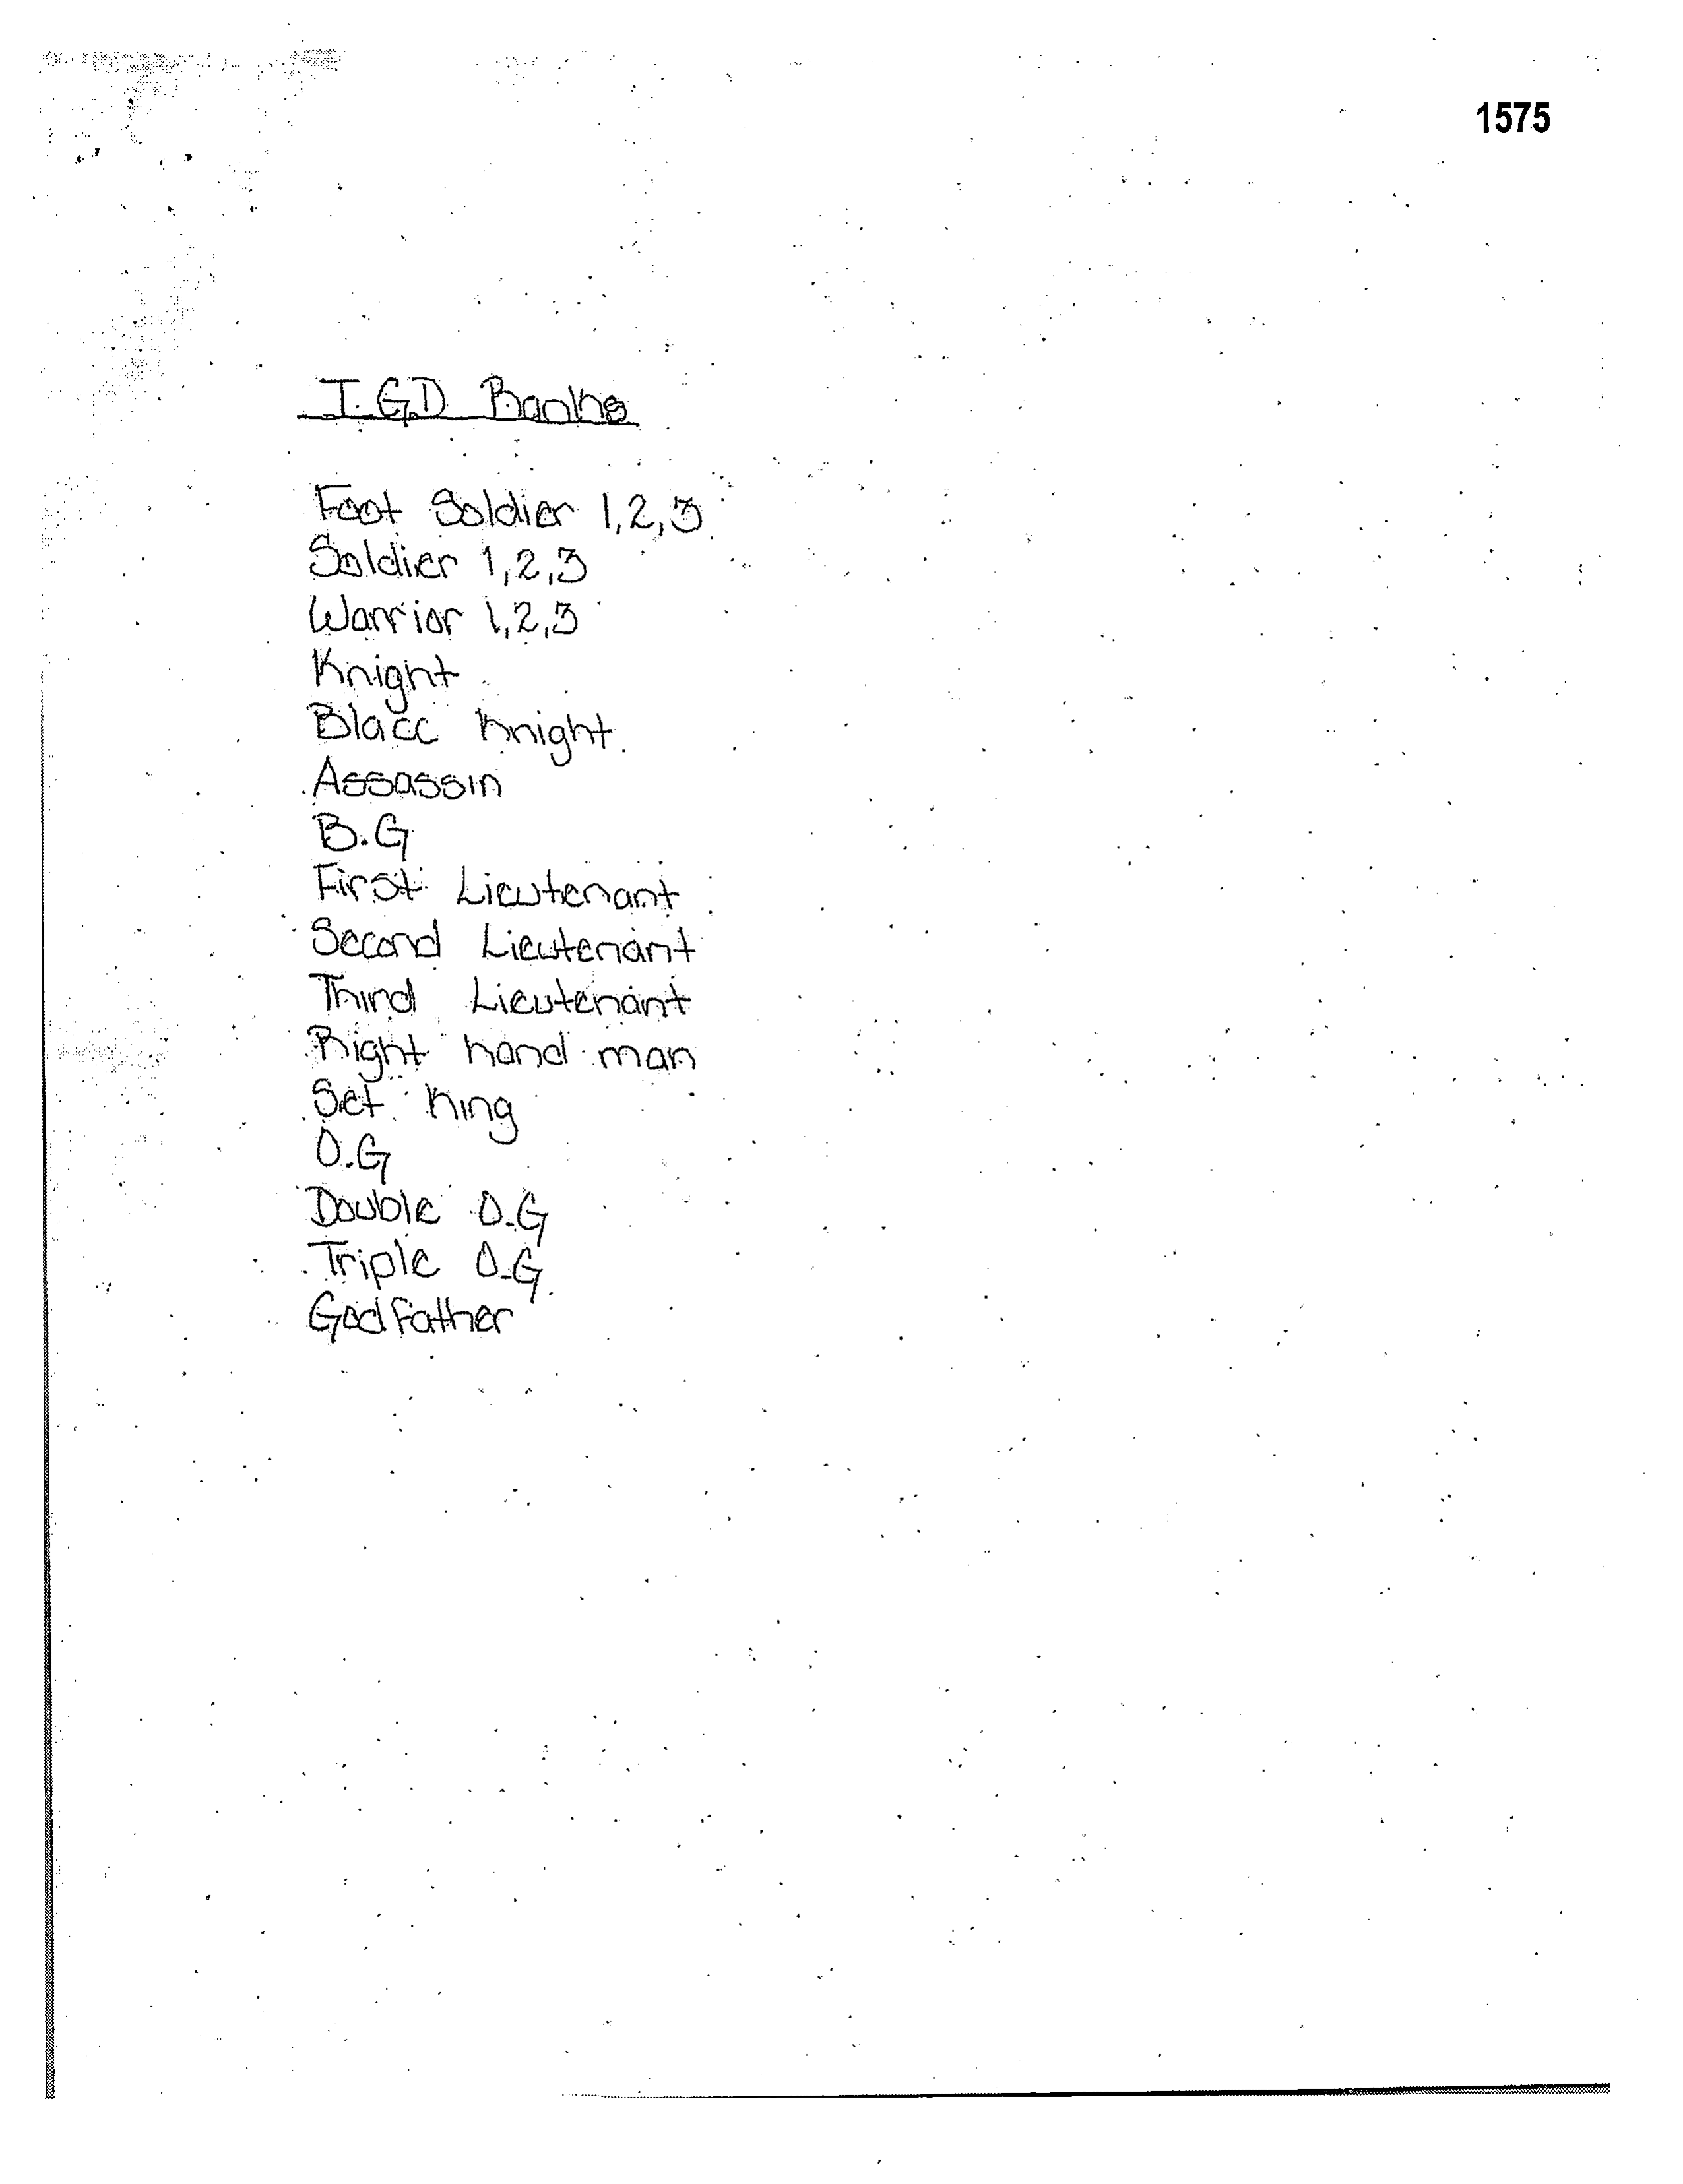 1575
I.G.D Ranks
Foot Soldier 1,2,3
Soldier 1,2,3
Warrior 1,2,3
Knight
Blacc Knight
Assassin
B.G
First Lieutenant
Second Lieutenant
Third Lieutenant
Right hand man
Set King
O.G
Double O.G
Triple O.G
Godfather